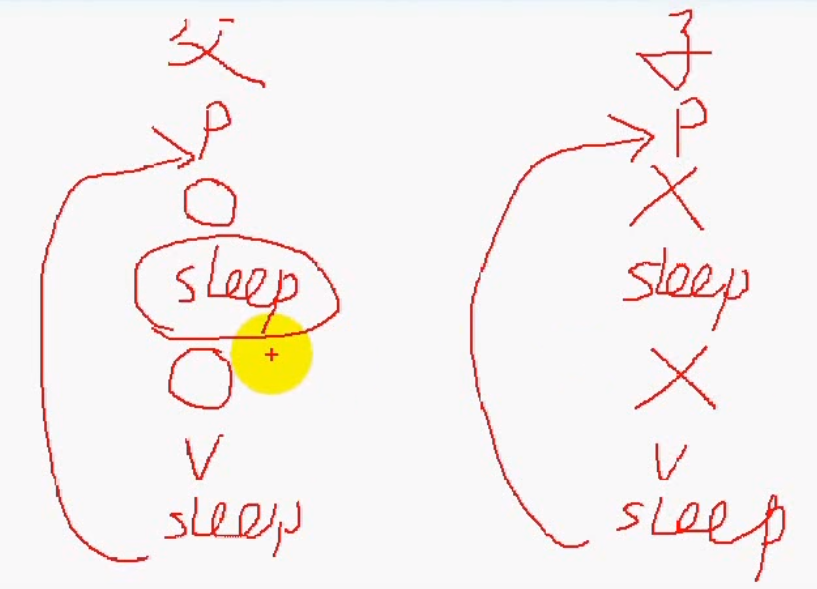 父
P
O
sleep
O
V
sleep
子
P
X
sleep
X
V
sleep